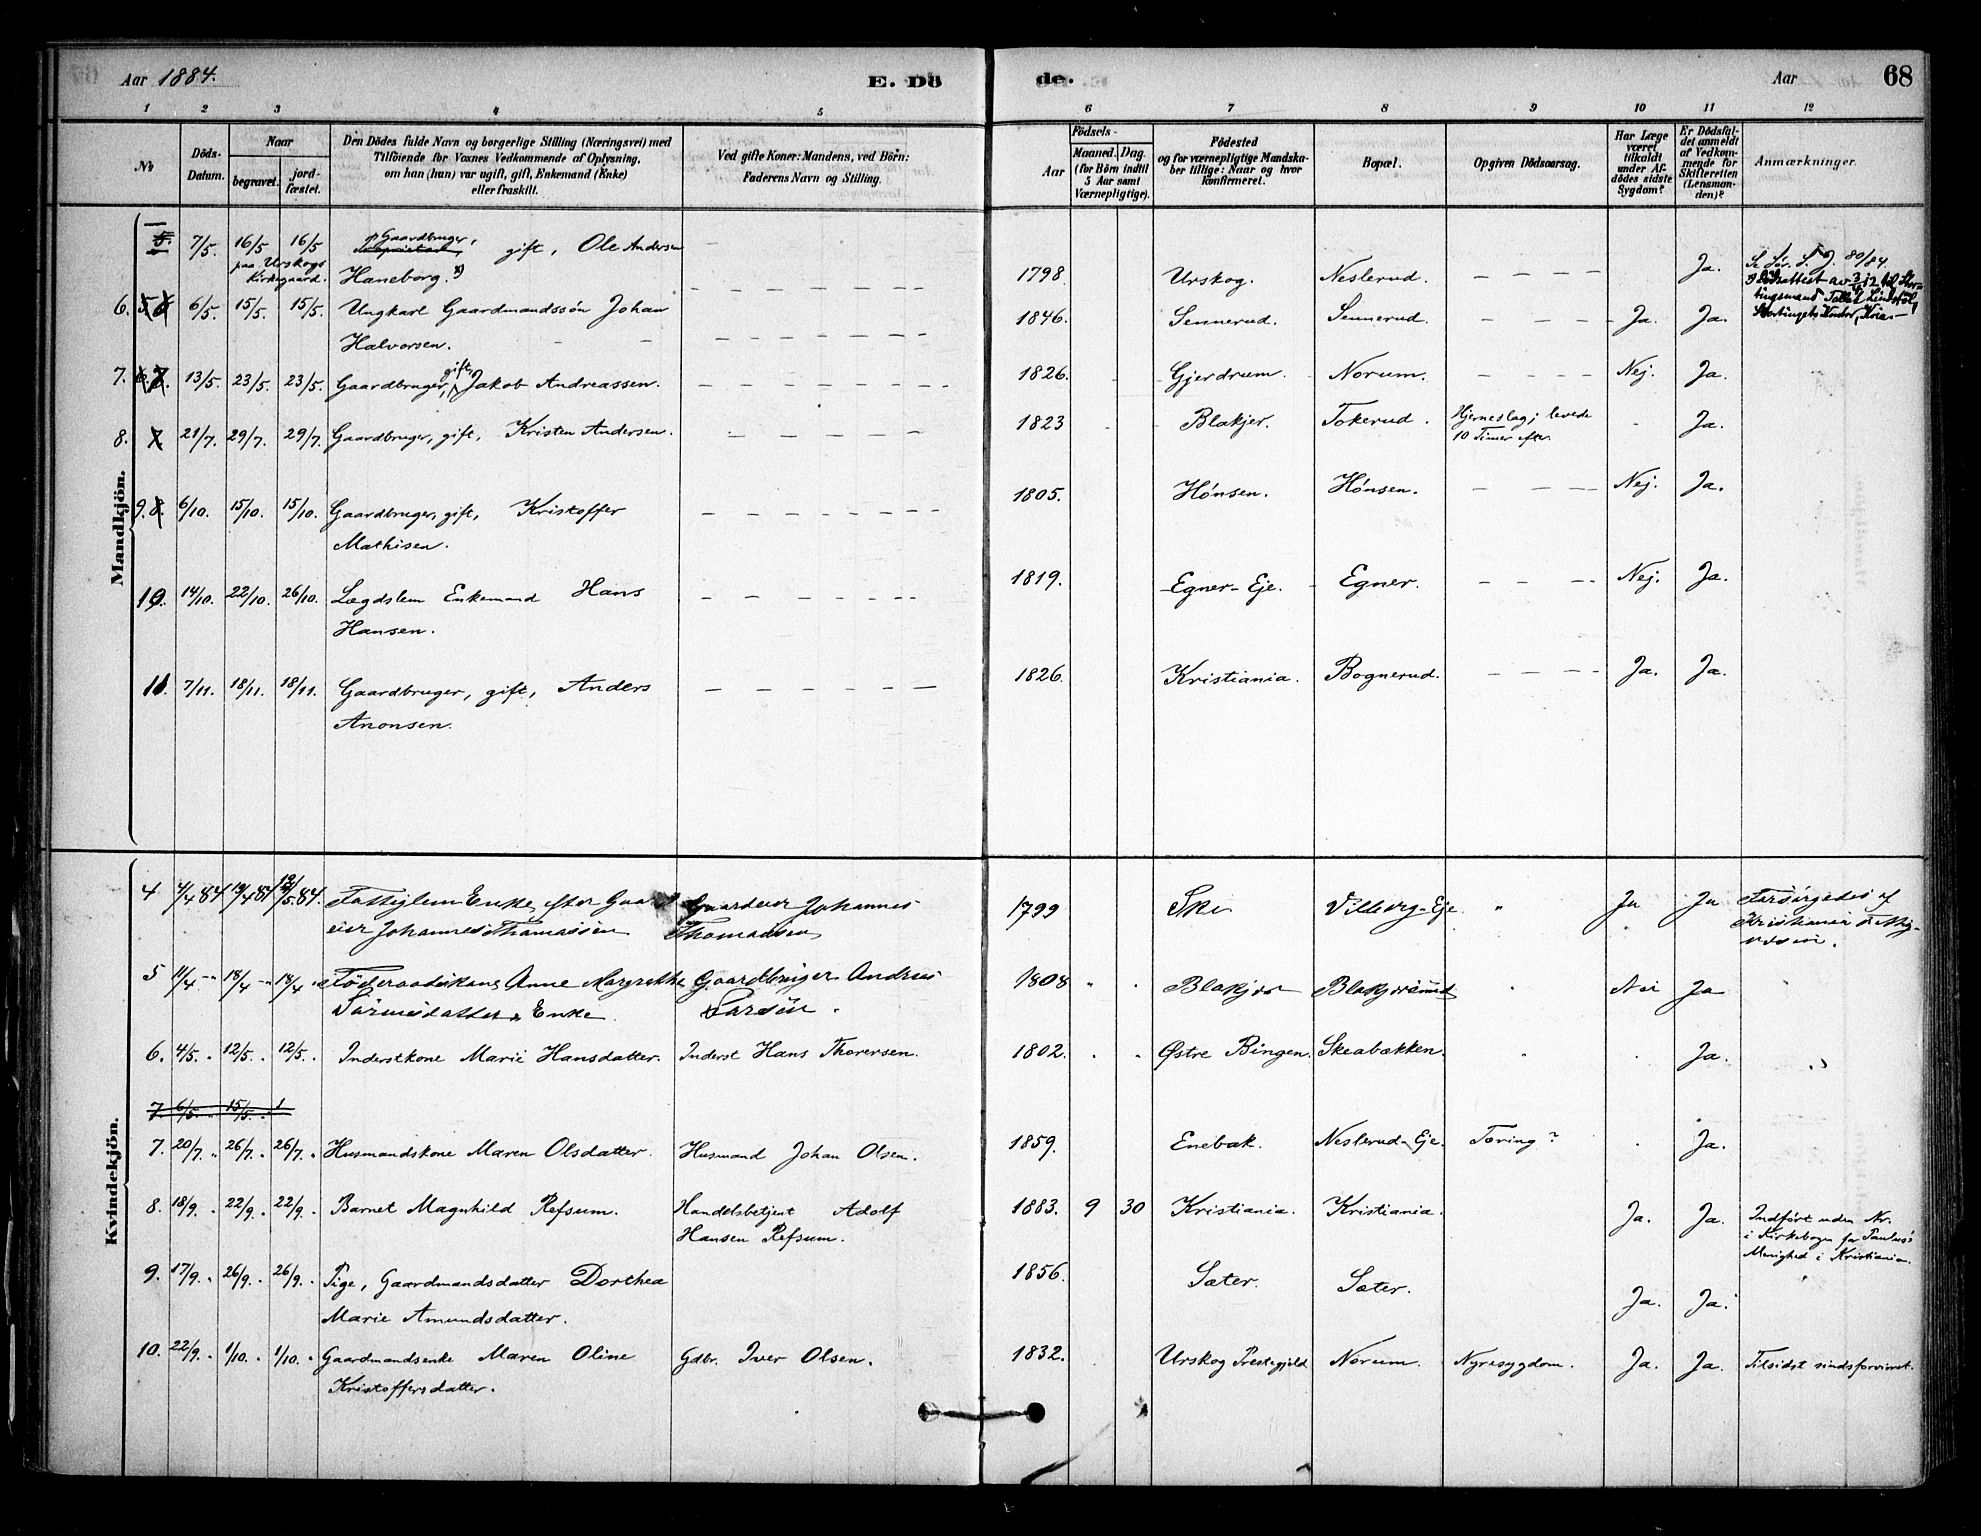 Aar 1884.
E. Dö
de.
Aar
68
1 2 3 4 5
6 7 8 9 10 11 12
No
Döds-Datum.
Naar
begravet.
jord-fæstet.
Den Dödes fulde Navn og borgerlige Stilling (Næringsvei) med
Tilföiende for Voxnes Vedkommende af Oplysning,
om han (hun) var ugift, gift, Enkemand (Enke)
eller fraskilt.
Ved gifte Koner: Mandens, ved Börn:
Faderens Navn og Stilling.
Födsels-
Aar
Maaned. Dag.
(for Börn indtil
5 Aar samt
Værnepligtige).
Födested
og for værnepligtige Mandska-
ber tillige: Naar og hvor
konfirmeret.
Bopæl.
Opgiven Dödsaarsag.
Har Læge
været
tilkaldt
under Af-
dödes sidste
Sygdom?
Er Dödsfal-
det anmeldt
af Vedkom-
mende for
Skifteretten
(Lensman-
den)?
Anmærkninger.
Mandkjön.
5. 7/5. 16/5 16/5 Gaardbruger, gift, Ole Andersen
paa Urskogs
Kirkegaard. Haneborg. x) 1798. Urskog. Neslerud. Ja.
80/84
6. 6/5. 15/5. 15/5. Ungkarl Gaardmandssön Johan
Halvorsen. 1846. Sennerud. Sennerud. Ja. Ja.
7. 13/5. 23/5. 23/5. Gaardbruger, gift, Jakob Andreassen. 1826. Gjerdrum. Norum. Nej. Ja.
8. 21/7. 29/7. 29/7. Gaardbruger, gift, Kristen Andersen. 1823 Blakjer. Tokerud. Hjerneslag; levede
10 Timer efter. Ja.
9. 8. 6/10. 15/10. 15/10. Gaardbruger, gift, Kristoffer
Mathisen. 1805. Hónsen. Hónsen. Nej. Ja.
10. 14/10. 22/10. 26/10. Lægdslem Enkemand Hans
Hansen. 1819. Egner-Eje. Egner. Nej. Ja.
11. 7/11. 18/11. 18/11. Gaardbruger, gift, Anders
Anonsen. 1826. Kristiania. Bognerud. Ja. Ja.
Kvindekjön.
4 4/4 84 19/4 84 /5.84. Fattiglem Enke efter Gaard
eier Johannes Thomassen Gaardeier Johannes
Thomassen 1799 Ski Villberg-Eje " Ja Ja Forsörgedes af
Kristiania
5 11/4 -"- 18/4 -"- 18/4 " Föderaadskone Anne Margrethe
Enke Gaardbruger Andreas
Larsön. 1808 " " Blakjer Nei Ja
6. 4/5. " 12/5. " 12/5. " Inderstkone Marie Hansdatter. Inderst Hans Thorersen. 1802. " " Østre Bingen. Skeabækken. " Ja.
7. 6/5. " 15/5. " 1
7. 20/7. " 26/7. " 26/7. " Husmandskone Maren Olsdatter. Husmand Johan Olsen. 1859. Enebak. Neslerud-Eje. Tæring? Ja.
8. 18/9. " 22/9. " 22/9. " Barnet Magnhild Refsum. Handelsbetjent Adolf
Hansen Refsum. 1883. 9 30 Kristiania. Kristiania. Ja. Ja. Indfört uden Nr.
i Kirkebogen for Paulus'
Menighed i Kristiania.
9. 17/9. " 26/9. " 26/9. " Pige, Gaardmandsdatter Dorthea
Marie Amundsdatter. 1856. Sæter. Sæter. Ja. Ja.
10. 22/9. " 1/10. " 1/10. " Gaardmandsenke Maren Oline
Kristoffersdatter. Gdbr. Iver Olsen. 1832. Urskog Prestegjeld Norum. Nyresygdom. Ja. Ja. Tilsidst sindsforvirret.